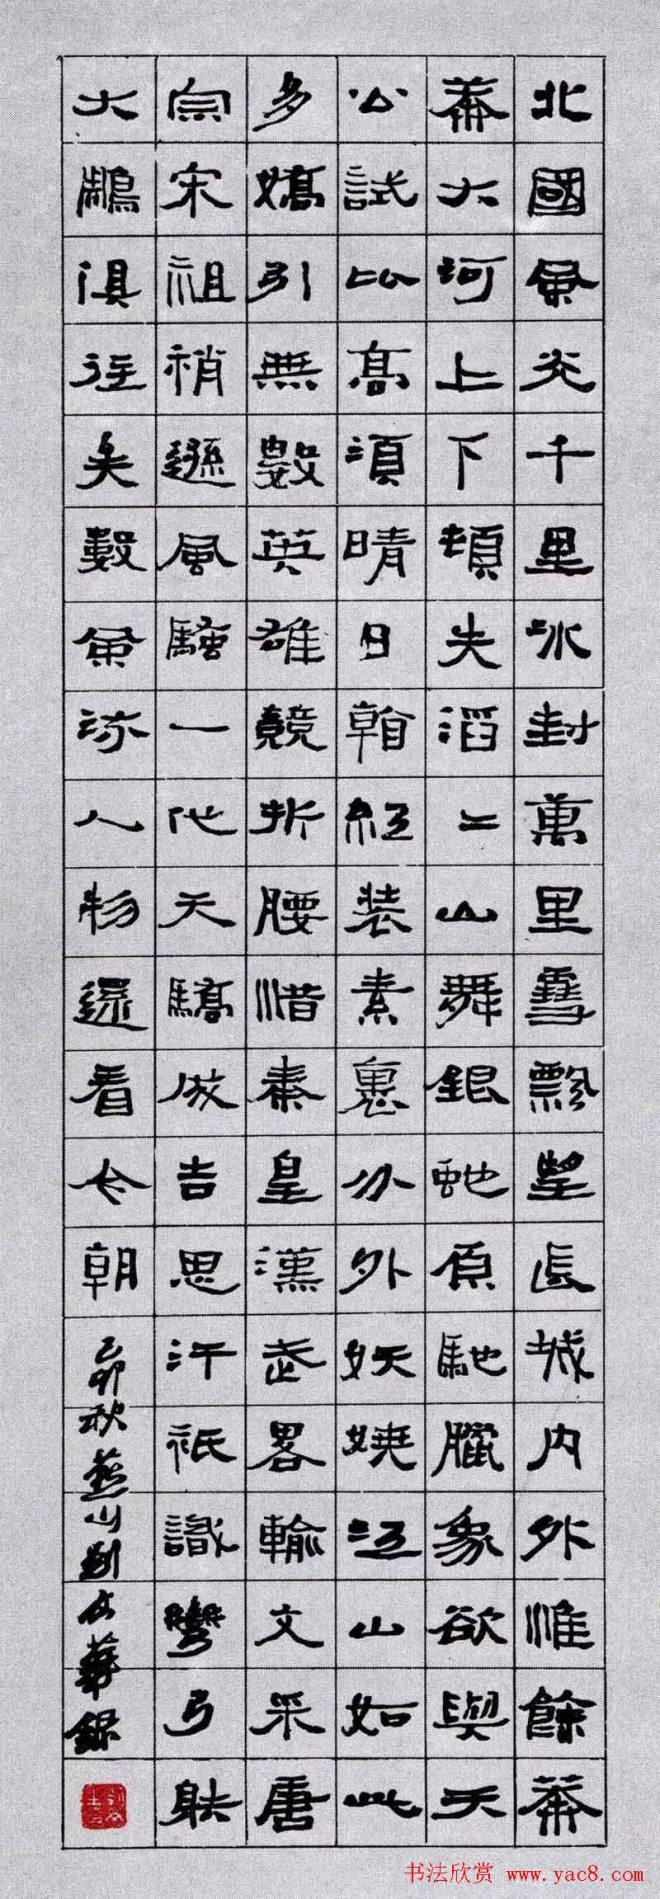 北國風光千里冰封萬里雪飄望長城內外惟餘莽
莽大河上下頓失滔〻山舞銀虵原馳臘象欲與天
公試比高須晴日看紅裝素裹分外妖嬈江山如此
多嬌引無數英雄競折腰惜秦皇漢武畧輸文采唐
宗宋祖稍遜風騷一代天驕成吉思汗祇識彎弓射
大鵰俱往矣數風流人物還看今朝
己卯秋燕山劉文華錄
书法欣赏 www.yac8.com